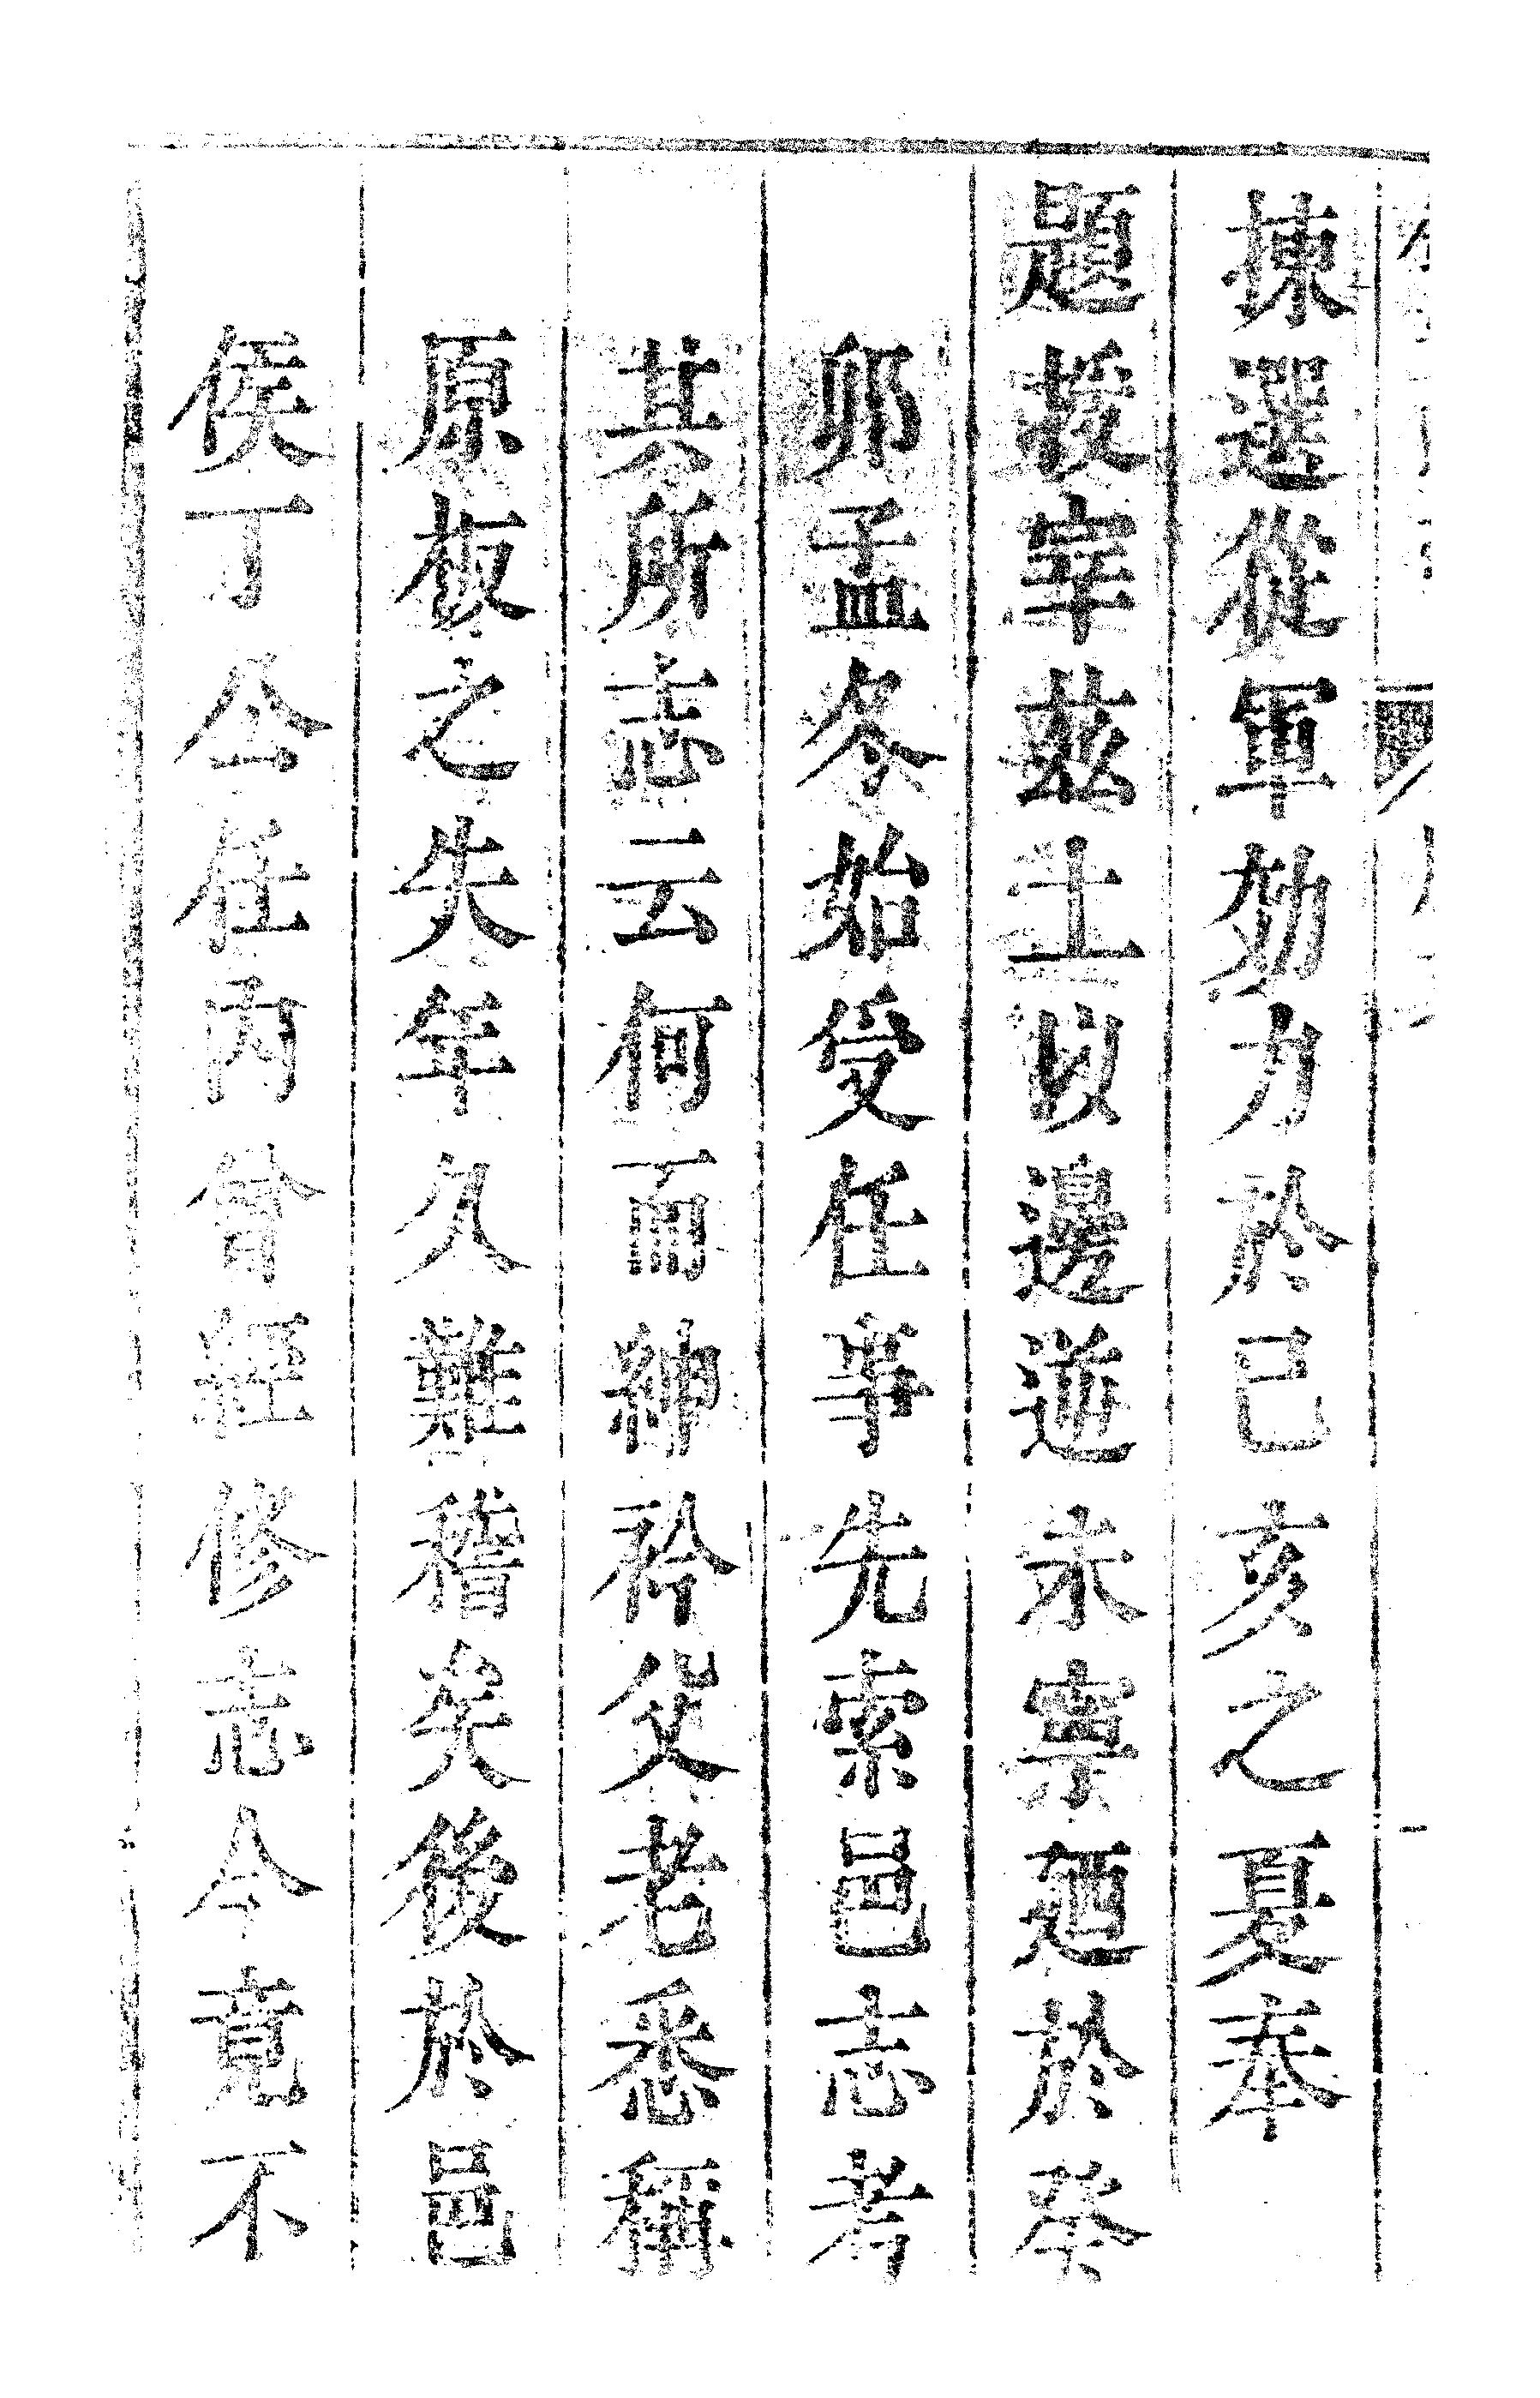 揀選從軍効力於已亥之夏奉
題授宰茲土以邊逆未寧廼於癸
卯孟冬始受任事先索邑志考
其所志云何而紳衿父老悉稱
原板之失年久難稽矣後於邑
侯丁公任內曾經修志今竟不